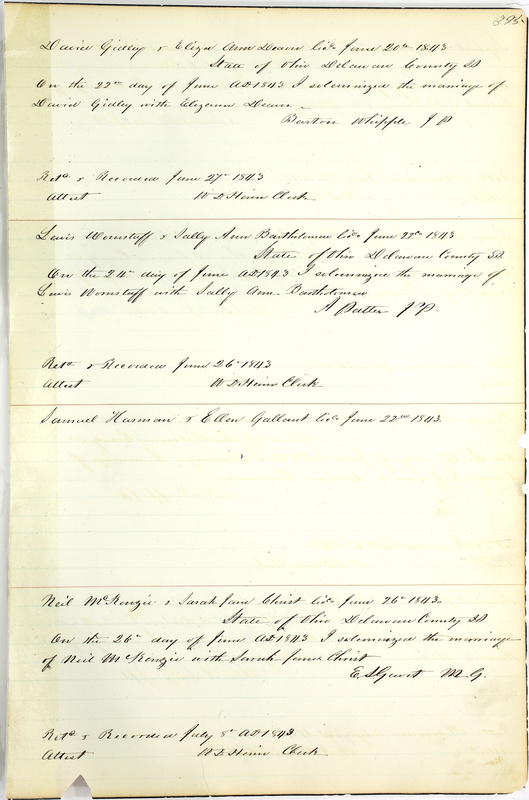 395
David Gidley & Eliza Ann Dearn Lic. June 20th 1843
State of Ohio Delaware County SS
On the 22nd day of June AD 1843 I solemnized the marriage of
David Gidley with Elizann Dearn
Barton Whipple J P
Retd & Recorded June 27th 1843
Attest W D Heim Clerk
Lewis Wornstaff & Sally Ann Bartholomew Lic. June 22nd 1843
State of Ohio Delaware County SS
On the 24th day of June AD 1843 I solemnized the marriage of
Lewis Wornstaff with Sally Ann Bartholomew
A Patter J.P.
Retd & Recorded June 26th 1843
Attest W D Heim Clerk
Samuel Harman & Ellen Gallant Lic. June 22nd 1843.
Neil McKenzie & Sarah Jane Christ Lic. June 26th 1843.
State of Ohio Delaware County SS
On the 26th day of June AD 1843 I solemnized the marriage
of Neil McKenzie with Sarah Jane Christ
E. S. M. G.
Retd & Recorded July 8th AD 1843
Attest W D Heim Clerk